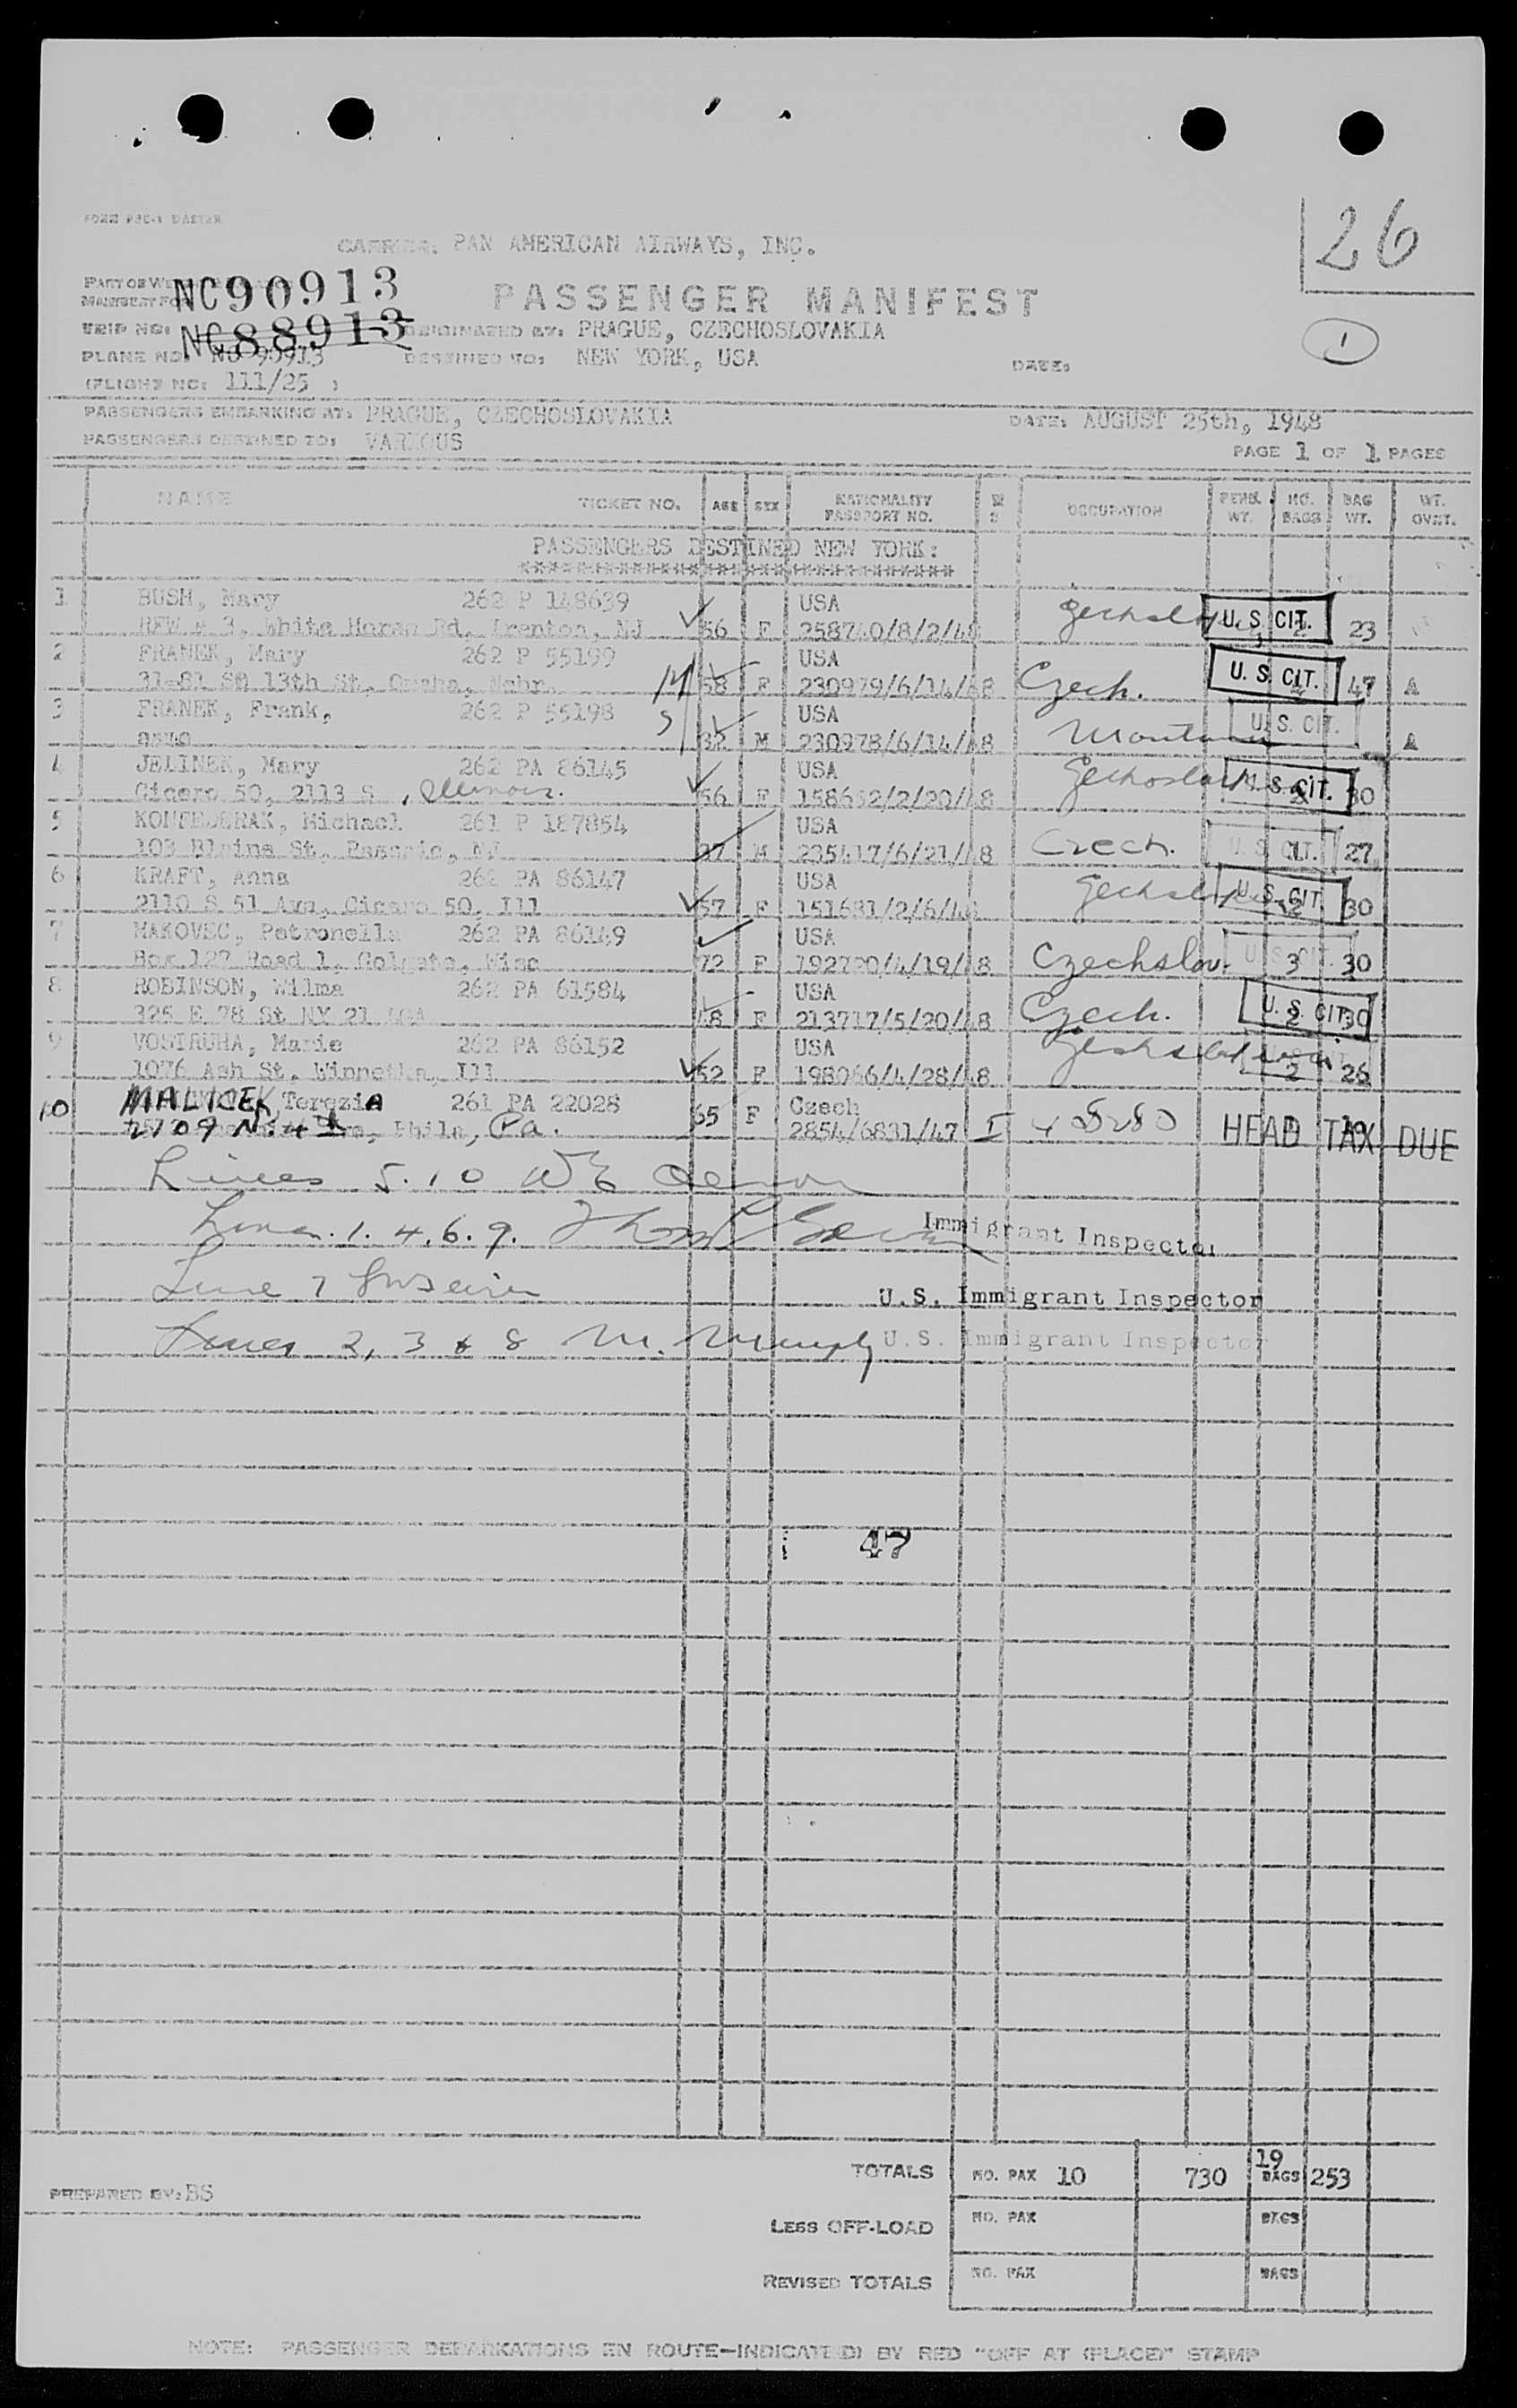 FORM
CARRIER: PAN AMERICAN AIRWAYS, INC.
26
NC90913
PASSENGER MANIFEST
TRIP NO: NC88913 ORIGINATED AT: PRAGUE, CZECHOSLOVAKIA
1
PLANE NO. NC 90913 DESTINED TO: NEW YORK, USA DATE:
(FLIGHT NO: 111/25 )
PASSENGERS EMBARKING AT: PRAGUE, CZECHOSLOVAKIA DATE: AUGUST 25th, 1948
PASSENGERS DESTINED TO: VARIOUS PAGE 1 OF 1 PAGES
NAME TICKET NO. AGE SEX NATIONALITY PASSPORT NO. M S OCCUPATION PERS. WT. NO. BAGS BAG WT. WT. OVNT.
PASSENGERS DESTINED NEW YORK:
1 BUSH, Mary 262 P 148639 USA
Rd, Trenton, NJ 56 F U.S. CIT. 23
2 FRANEK, Mary 262 P 55199 USA
13th St, Omaha, Nebr. M 58 F 230979/6/14/48 Czech. U.S. CIT. 47 A
3 FRANEK, Frank, 262 P 55198 USA
same S 32 M 230978/6/14/48 U.S. CIT. A
4 JELINEK, Mary 262 PA 86145 USA
Cicero 50, 2113 S , Illinois. 56 F U.S. CIT. 30
5 KONFEDERAK, Michael 261 P 187854 USA
103 Blaine St, 37 M 235417/6/21/48 Czech. U.S. CIT. 27
6 KRAFT, Anna 262 PA 86147 USA
2110 S 51 Ave, Cicero 50, Ill 57 F 151681/2/6/48 U.S. CIT. 2 30
7 MAKOVEC, Petronella 262 PA 86149 USA
Box 127 Road 1, Colgate, Wisc 72 F 192720/4/19/48 Czechslov. U.S. CIT. 3 30
8 ROBINSON, Wilma 262 PA 61584 USA
325 E 78 St NY 21 48 F 213717/5/20/48 Czech. U.S. CIT. 2 30
9 VOSTRUHA, Marie 262 PA 86152 USA
1076 Ash St. Winnetka, Ill 52 F 198066/4/28/48 2 26
10 MALICEK, TereziA 261 PA 22028 65 F Czech
2709 N. 4th Phila, Pa. 2854/6831/47 I HEAD TAX DUE
Lines 5.10
Lines. 1. 4. 6. 9. Immigrant Inspector
Line 7 U.S. Immigrant Inspector
Lines 2, 3 & 8 M. Murphy U.S. Immigrant Inspector
47
TOTALS NO. PAX 10 730 19 BAGS 253
PREPARED BY: BS
LESS OFF-LOAD NO. PAX BAGS
REVISED TOTALS NO. PAX BAGS
NOTE: PASSENGER DEBARKATIONS EN ROUTE—INDICATED BY RED "OFF AT (PLACE)" STAMP